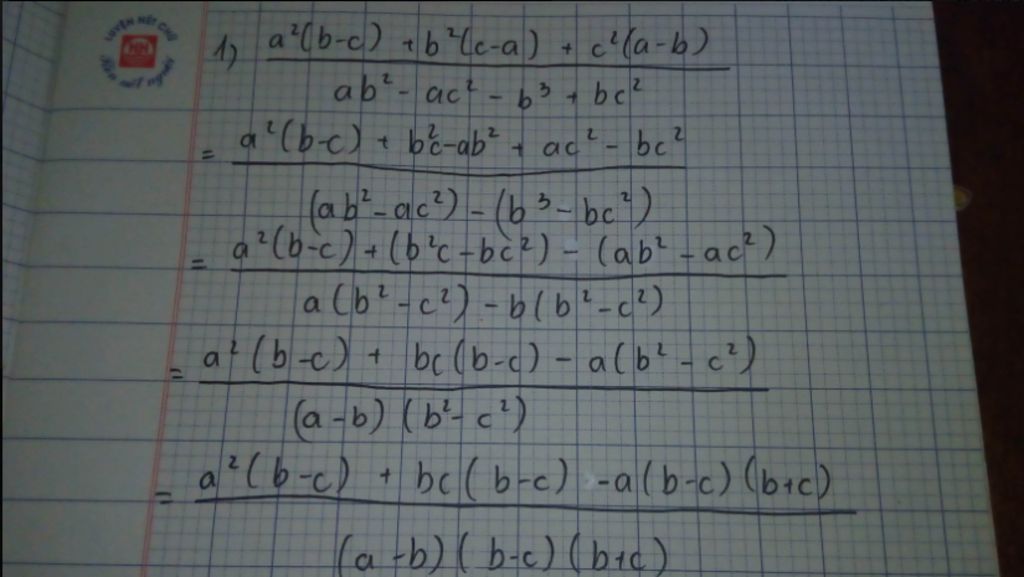 LUYỆN NÉT CHỮ
Rèn nết người
1) a²(b-c) + b²(c-a) + c²(a-b)
ab² - ac² - b³ + bc²
= a²(b-c) + b²c - ab² + ac² - bc²
(ab² - ac²) - (b³ - bc²)
= a²(b-c) + (b²c - bc²) - (ab² - ac²)
a(b² - c²) - b(b² - c²)
= a²(b-c) + bc(b-c) - a(b² - c²)
(a-b)(b² - c²)
= a²(b-c) + bc(b-c) - a(b-c)(b+c)
(a-b)(b-c)(b+c)